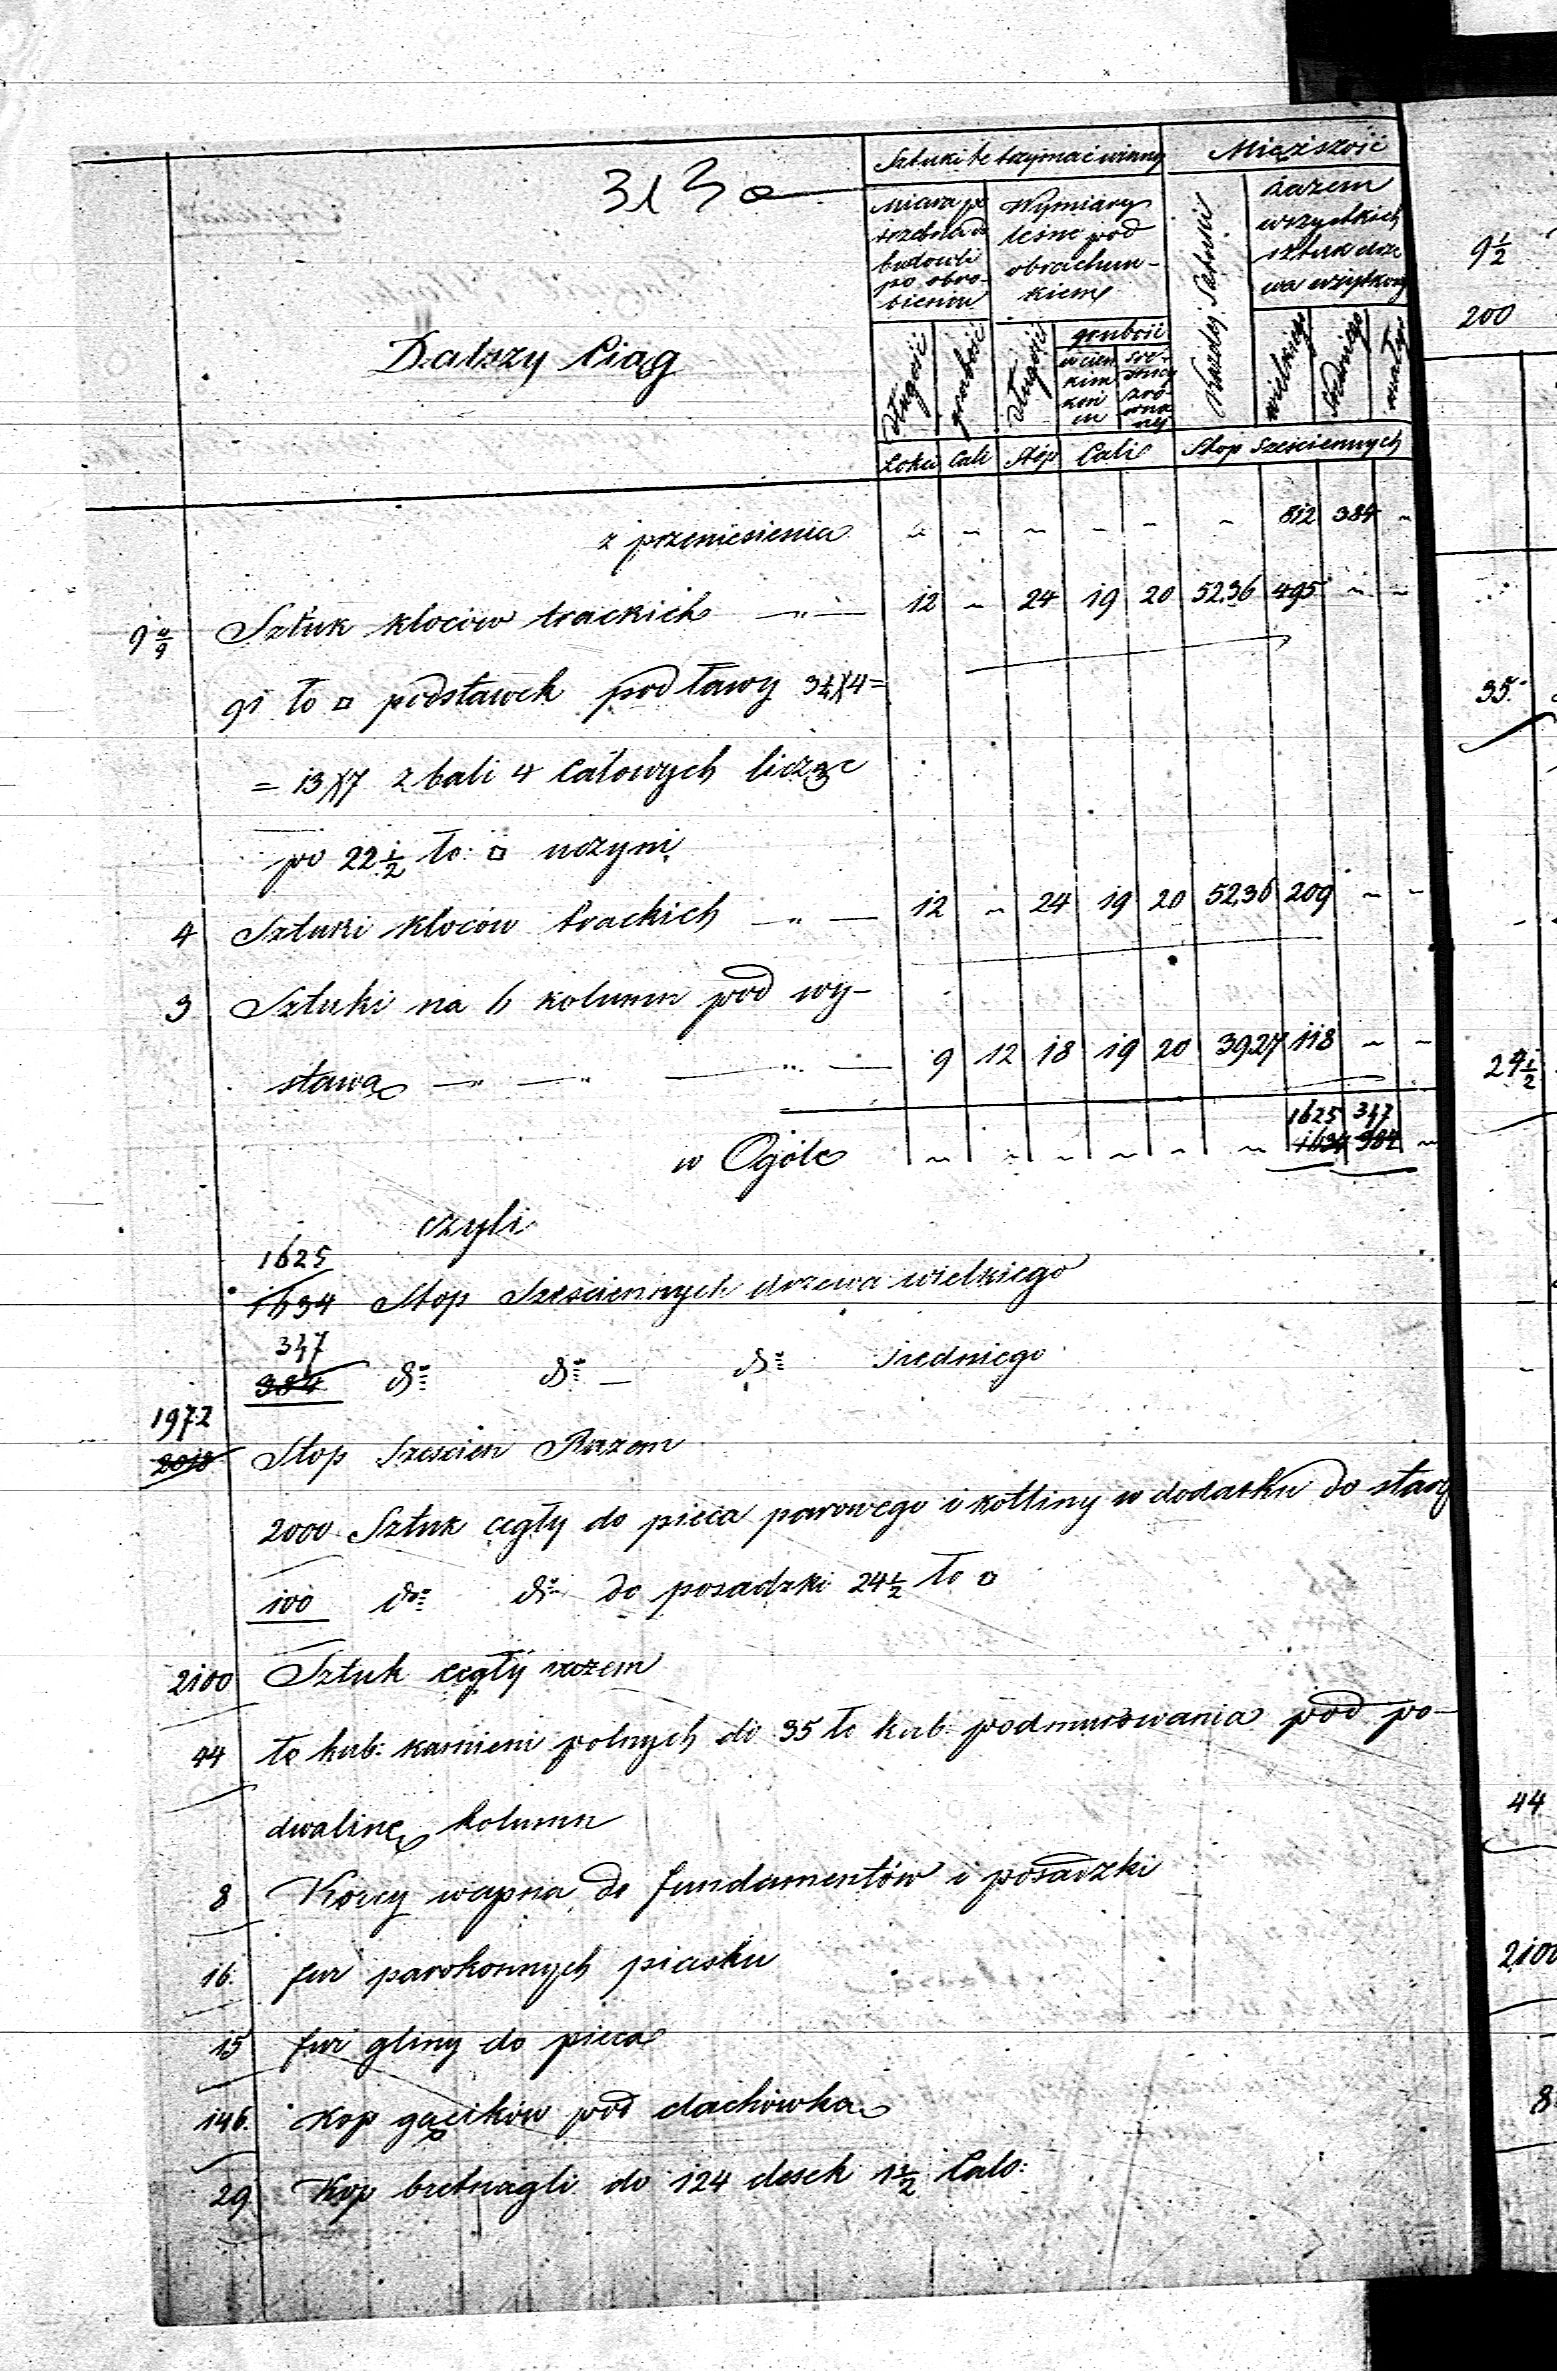 313
Dalszy Ciąg
Sztuki te trzymać winny
Miąższość
miara po
trzebna do
budowli
po obro-
bieniu
Wymiary
leśne pod
obrachun-
kiem
każdej Sztuki
razem
wszystkich
sztuk drze
wa użytkowego
długość
grubość
długość
grubość
w cien
kim
koń
cu
śre-
dnicy
zró-
wna
nej
wielkiego
średniego
małego
Łokci Cali Stóp Cali Stop Sześciennych
z przeniesienia ~ ~ ~ ~ ~ ~ 812 384 ~
9 4/9 Sztuk kloców trackich — " — 12 ~ 24 19 20 52.36 495 ~ ~
91 ło □ podstawek pod ławy 3¼ X 4 =
= 13 X 7 z bali 4 Calowych licząc
po 22½ ło: □ uczyni
4 Sztuki kloców trackich — " — 12 ~ 24 19 20 52.36 209 ~ ~
3 Sztuki na 6 kolumn pod wy-
stawę — " — " — " — 9 12 18 19 20 39.27 118 ~ ~
1625 347
w Ogóle ~ ~ ~ ~ ~ ~ 1634 384 ~
czyli
1625
1634 Stop Sześciennych drzewa wielkiego
347
384 do do — do średniego
1972
2018 Stop Sześcien Razem
2000 Sztuk cegły do pieca parowego i kotliny w dodatku do stary
100 do do do posadzki 24½ ło □
2100 Sztuk cegły razem
44 ło kub: kamieni polnych do 35 ło kub. podmurowania pod po-
dwalinę kolumn
8 Korcy wapna do fundamentów i posadzki
16. fur parokonnych piasku
15 fur gliny do pieca
146. Kop gącików pod dachówkę
29 Kop bretnagli do 124 desek 1½ Calo:
9½
200
35.
24½
44
2100
8